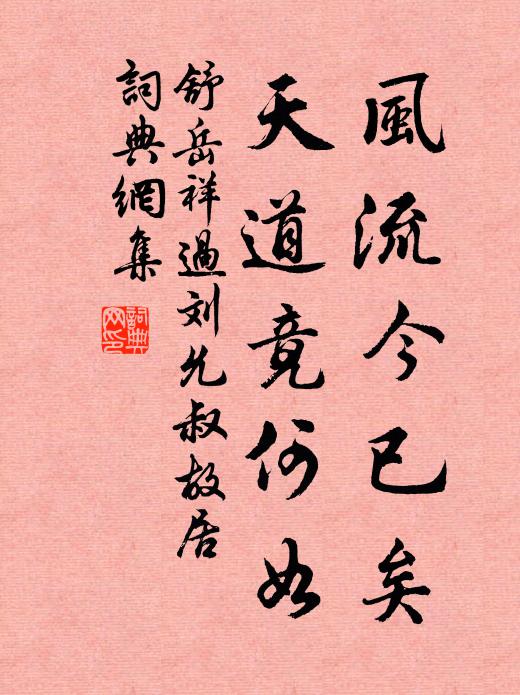 風流今已矣
天道竟何如
舒岳祥過刘允叔故居
詞典網集
詞典网印